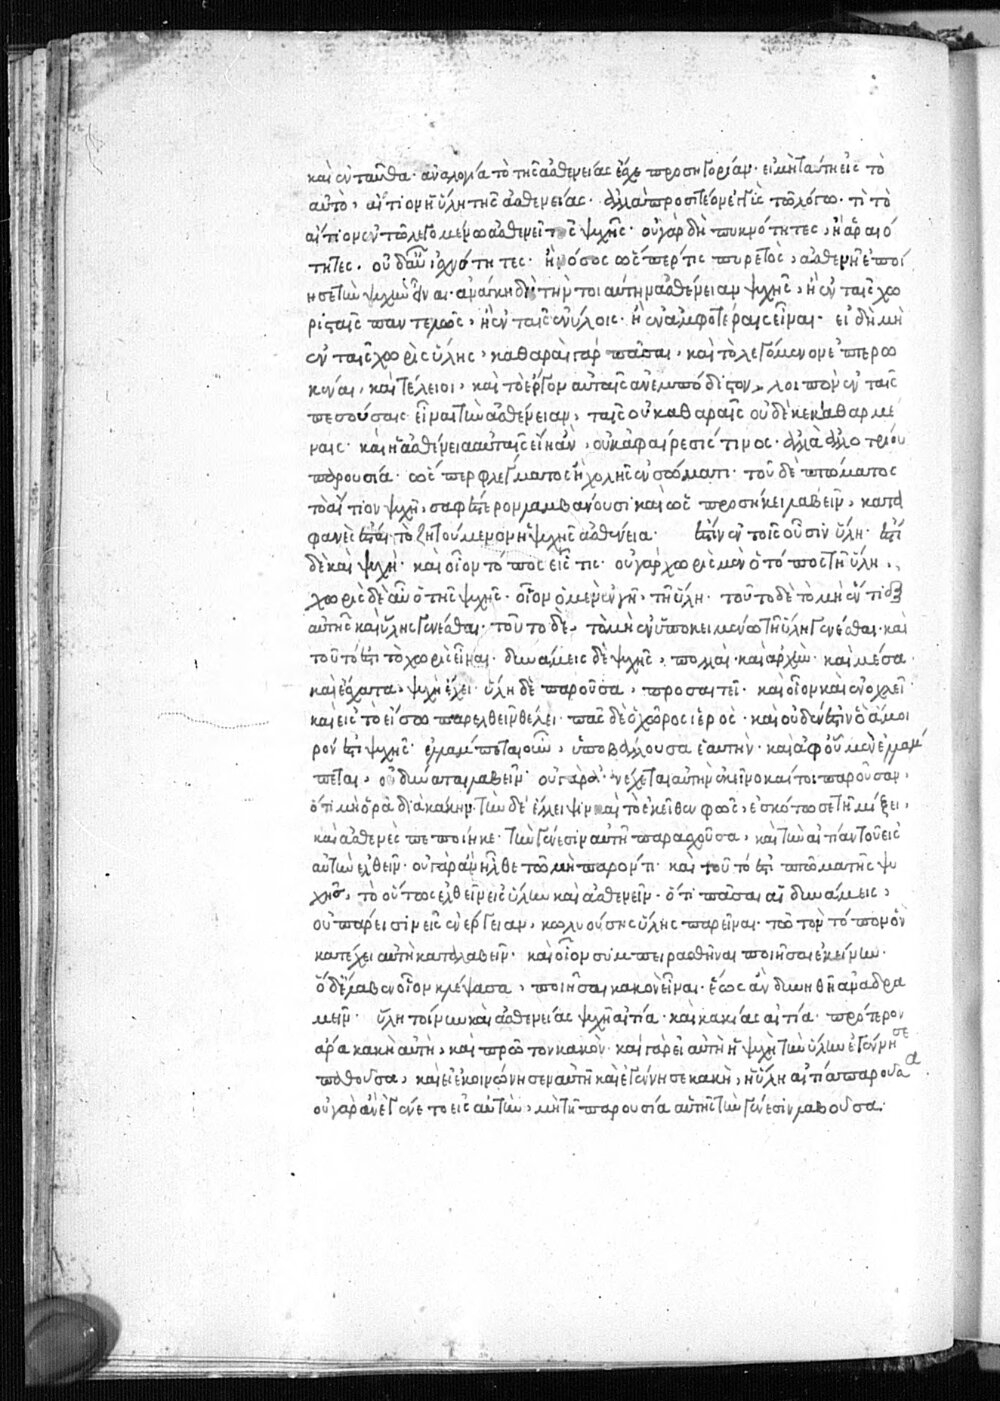 καὶ ἐνταῦθα· ἀναλογία τὸ τῆς ἀσθενείας ἔσχε προσηγορίαν· εἰ μὴ ταύτη εἰς τὸ
αὐτὸ, αἴτιον ἡ ὕλη τῆς ἀσθενείας· ἀλλὰ προσιτέον ἐγγὺς τῶ λόγω· τί τὸ
αἴτιον ἐν τῶ λεγομένω ἀσθενεῖ τῆς ψυχῆς· οὐ γὰρ δὴ πυκνότητες, ἢ ἀραιό
τητες· οὐδ' αὖ ἰσχνότητες· ἢ νόσος ὥσπερ τις πυρετὸς, ἀσθενῆ ἐποί
ησε τὴν ψυχὴν εἶναι· ἀνάγκη δὴ τὴν τοιαύτην ἀσθένειαν ψυχῆς, ἢ ἐν ταῖς χω
ρισταῖς παντελῶς, ἢ ἐν ταῖς ἐνύλοις· ἢ ἐν ἀμφοτέραις εἶναι· εἰ δὴ μὴ
ἐν ταῖς χωρὶς ὕλης, καθαραὶ γὰρ πᾶσαι, καὶ τὸ λεγόμενον ἐπτερω
μέναι, καὶ τέλειοι, καὶ τὸ ἔργον αὐταῖς ἀνεμπόδιστον, λοιπὸν ἐν ταῖς
πεσούσαις εἶναι τὴν ἀσθένειαν, ταῖς οὐ καθαραῖς οὐδὲ κεκαθαρμέ
ναις· καὶ ἡ ἀσθένεια αὐταῖς εἴη ἂν, οὐκ ἀφαίρεσίς τινος· ἀλλὰ ἀλλοτρίου
παρουσία· ὥσπερ φλέγματος ἢ χολῆς ἐν σώματι· τοῦ δὲ πτώματος
τὸ αἴτιον ψυχῆ, σαφέστερον λαμβάνουσι καὶ ὡς προσήκει λαβεῖν, κατα
φανὲς ἔσται τὸ ζητούμενον ἡ ψυχῆς ἀσθένεια· ἔστιν ἐν τοῖς οὖσιν ὕλη· ἔστι
δὲ καὶ ψυχή· καὶ οἷον τόπος εἷς τις· οὐ γὰρ χωρὶς μὲν ὁ τόπος τῆ ὕλη,
χωρὶς δὲ αὖ ὁ τῆς ψυχῆς· οἷον ὁ μὲν ἐν γῆ, τῆ ὕλη· τοῦτο δὲ τὸ μὴ ἕν τι ἐξ
αὐτῆς καὶ ὕλης γενέσθαι· τοῦτο δὲ, τὸ μὴ ἐν ὑποκειμένω τῆ ὕλη γενέσθαι· καὶ
τοῦτό ἐστι τὸ χωρὶς εἶναι· δυνάμεις δὲ ψυχῆς, πολλαὶ· καὶ ἀρχὴν· καὶ μέσα
καὶ ἔσχατα, ψυχὴ ἔχει· ὕλη δὲ παροῦσα, προσαιτεῖ· καὶ οἷον καὶ ἐνοχλεῖ
καὶ εἰς τὸ εἴσω παρελθεῖν θέλει· πᾶς δὲ ὁ χῶρος ἱερὸς· καὶ οὐδέν ἐστιν ὃ ἄμοι
ρόν ἐστι ψυχῆς· ἐλλάμπεται οὖν, ὑποβάλλουσα ἑαυτὴν· καὶ ἀφ' οὗ μὲν ἐλλάμ
πεται, οὐ δύναται λαβεῖν· οὐ γὰρ ἀνέχεται αὐτὴν ἐκεῖνο καίτοι παροῦσαν,
ὅτι μὴ ὁρᾶ διὰ κάκην· τὴν δὲ ἔλλειψιν καὶ τὸ ἐκεῖθεν φῶς, ἐσκότωσε τῆ μίξει,
καὶ ἀσθενὲς πεποίηκε· τὴν γένεσιν αὐτὴ παρασχοῦσα, καὶ τὴν αἰτίαν τοῦ εἰς
αὐτὴν ἐλθεῖν· οὐ γὰρ ἂν ἦλθε τῶ μὴ παρόντι· καὶ τοῦτό ἐστι πτῶμα τῆς ψυ
χῆς, τὸ οὕτως ἐλθεῖν εἰς ὕλην καὶ ἀσθενεῖν· ὅτι πᾶσαι αἱ δυνάμεις,
οὐ πάρεισιν εἰς ἐνέργειαν, κωλυούσης ὕλης παρεῖναι· τῶ τὸν τόπον ὃν
κατέχει αὐτὴ καταλαβεῖν· καὶ οἷον συσπειραθῆναι ποιῆσαι ἐκείνην·
ὃ δ' ἔλαβεν οἷον κλέψασα, ποιῆσαι κακὸν εἶναι· ἕως ἂν δυνηθῆ ἀναδρα
μεῖν· ὕλη τοίνυν καὶ ἀσθενείας ψυχῆ αἰτία· καὶ κακίας αἰτία· πρότερον
ἄρα κακὴ αὐτὴ, καὶ πρῶτον κακόν· καὶ γὰρ εἰ αὐτὴ ἡ ψυχὴ τὴν ὕλην ἐγέννησε
παθοῦσα, καὶ εἰ ἐκοινώνησεν αὐτῆ καὶ ἐγέννησε κακὴ, ἡ ὕλη αἰτία παροῦσα
οὐ γὰρ ἂν ἐγένετο εἰς αὐτὴν, μὴ τῆ παρουσία αὐτῆς τὴν γένεσιν λαβοῦσα·